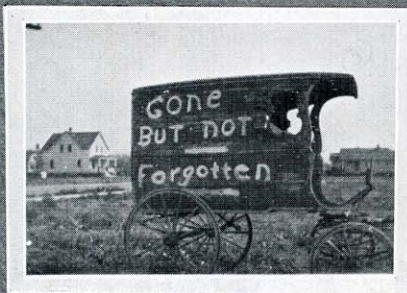 Gone
BUT not
Forgotten